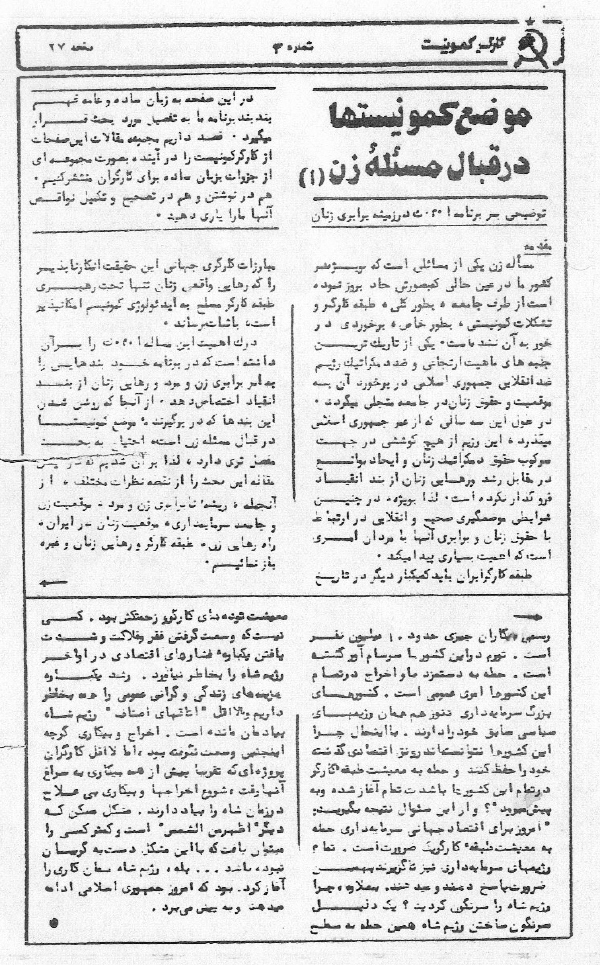 کارگر کمونیست
شماره ۳
صفحه ۲۷
موضع کمونیستها
در قبال مسئلهٔ زن (۱)
توضیحی بر برنامه ا.م.ک در زمینه برابری زنان
در این صفحه به زبان ساده و عامه فهم
بند بند برنامه ما به تفصیل مورد بحث قرار
میگیرد. قصد داریم مجموعه مقالات این صفحات
از کارگر کمونیست را در آینده بصورت مجموعه ای
از جزوات بزبان ساده برای کارگران منتشر کنیم.
هم در نوشتن و هم در تصحیح و تکمیل نواقص
آنها ما را یاری دهید.
مقدمه
مسأله زن یکی از مسائلی است که بویژه در
کشور ما در عین حالی که بصورش حاد بروز نموده
است از طرف جامعه، بطور کلی، طبقه کارگر و
تشکلات کمونیستی، بطور خاص، برخوردی در
خور به آن نشده است. یکی از تاریک ترین
جلبه های ماهیت ارتجاعی و ضد دمکراتیک رژیم
ضد انقلابی جمهوری اسلامی در برخورد آن به
موقعیت و حقوق زنان در جامعه متجلی میگردد.
در طول این سه سالی که از عمر جمهوری اسلامی
میگذرد، این رژیم از هیچ کوششی در جهت
سرکوب حقوق دمکراتیک زنان و ایجاد موانع
در مقابل رشد و رهایی زنان از بند انقیاد
فروگذار نکرده است. لذا بویژه در چنین
شرایطی موضعگیری صحیح و انقلابی در ارتباط
با حقوق زنان و برابری آنها با مردان امری
است که اهمیت بسیاری پیدا میکند.
طبقه کارگر ایران باید کمیکبار دیگر در تاریخ
مبارزات کارگری جهانی این حقیقت انکارناپذیر
را که رهایی واقعی زنان تنها تحت رهبری
طبقه کارگر مسلح به ایدئولوژی کمونیسم امکانپذیر
است، باثبات برساند.
درک اهمیت این مسأله ا.م.ک را بر آن
داشته است که در برنامه خود بندهایی را
به امر برابری زن و مرد و رهایی زنان از بند
انقیاد اختصاص دهد. از آنجا که روشن شدن
این بندها که در برگیرنده موضع کمونیستها
در قبال مسئله زن است، احتیاج به بحث
مفصل تری دارد، لذا بر آن شدیم که در این
مقاله این بحث را از نقطه نظرات مختلف، از
آنجمله، ریشه نابرابری زن و مرد، موقعیت زن
و جامعه سرمایه داری، موقعیت زنان در ایران،
راه رهایی زن، طبقه کارگر و رهایی زنان و غیره
باز نمائیم.
رسمی بیکاران چیزی حدود ۱۰ میلیون نفر
است. تورم در این کشورها سرسام آور گشته
است. حمله به دستمزد ها و اخراج در تمام
این کشورها امری عمومی است. کشورهای
بزرگ سرمایه داری هنوز هم همان رژیمهای
سیاسی سابق خود را دارند. با اینحال چرا
این کشورها نتوانسته اند رونق اقتصادی گذشته
خود را حفظ کنند و حمله به معیشت طبقه کارگر
در تمام این کشورها با شدت تمام آغاز شده و به
پیش میرود"؟ و از این سئوال نتیجه بگیرید:
"امروز برای اقتصاد جهانی سرمایه داری حمله
به معیشت طبقه کارگر یک ضرورت است. تمام
رژیمهای سرمایه داری نیز ناگزیرند به این
ضرورت پاسخ دهند و میدهند. بعلاوه، چرا
رژیم شاه را سرنگون کردید؟ یک دلیل
سرنگون ساختن رژیم شاه همین حمله به سطح
معیشت توده های کارگر و زحمتکش بود. کسی
نیست که وسعت گرفتن فقر و فلاکت و شدت
یافتن یکباره فشارهای اقتصادی در اواخر
رژیم شاه را بخاطر نیاورد. رشد یکباره
هزینه های زندگی و گرانی عمومی را همه بخاطر
داریم و لااقل "اطاقهای اصناف" رژیم شاه،
بیادمان مانده است. اخراج و بیکاری گرچه
اینچنین وسعت نگرفته بود، اما لااقل کارگران
پروژه ای که تقریبا بیش از همه بیکاری به سراغ
آنها رفت، شروع اخراجها و بیکاری بی علاج
در زمان شاه را بیاد دارند. مشکل مسکن که
دیگر "اظهر من الشمس" است و کمتر کسی را
میتوان یافت که با این مشکل دست به گریبان
نبوده باشد ... بله، رژیم شاه همان کاری را
آغاز کرد. بود که امروز جمهوری اسلامی ادامه
میدهد و به پیش می برد.